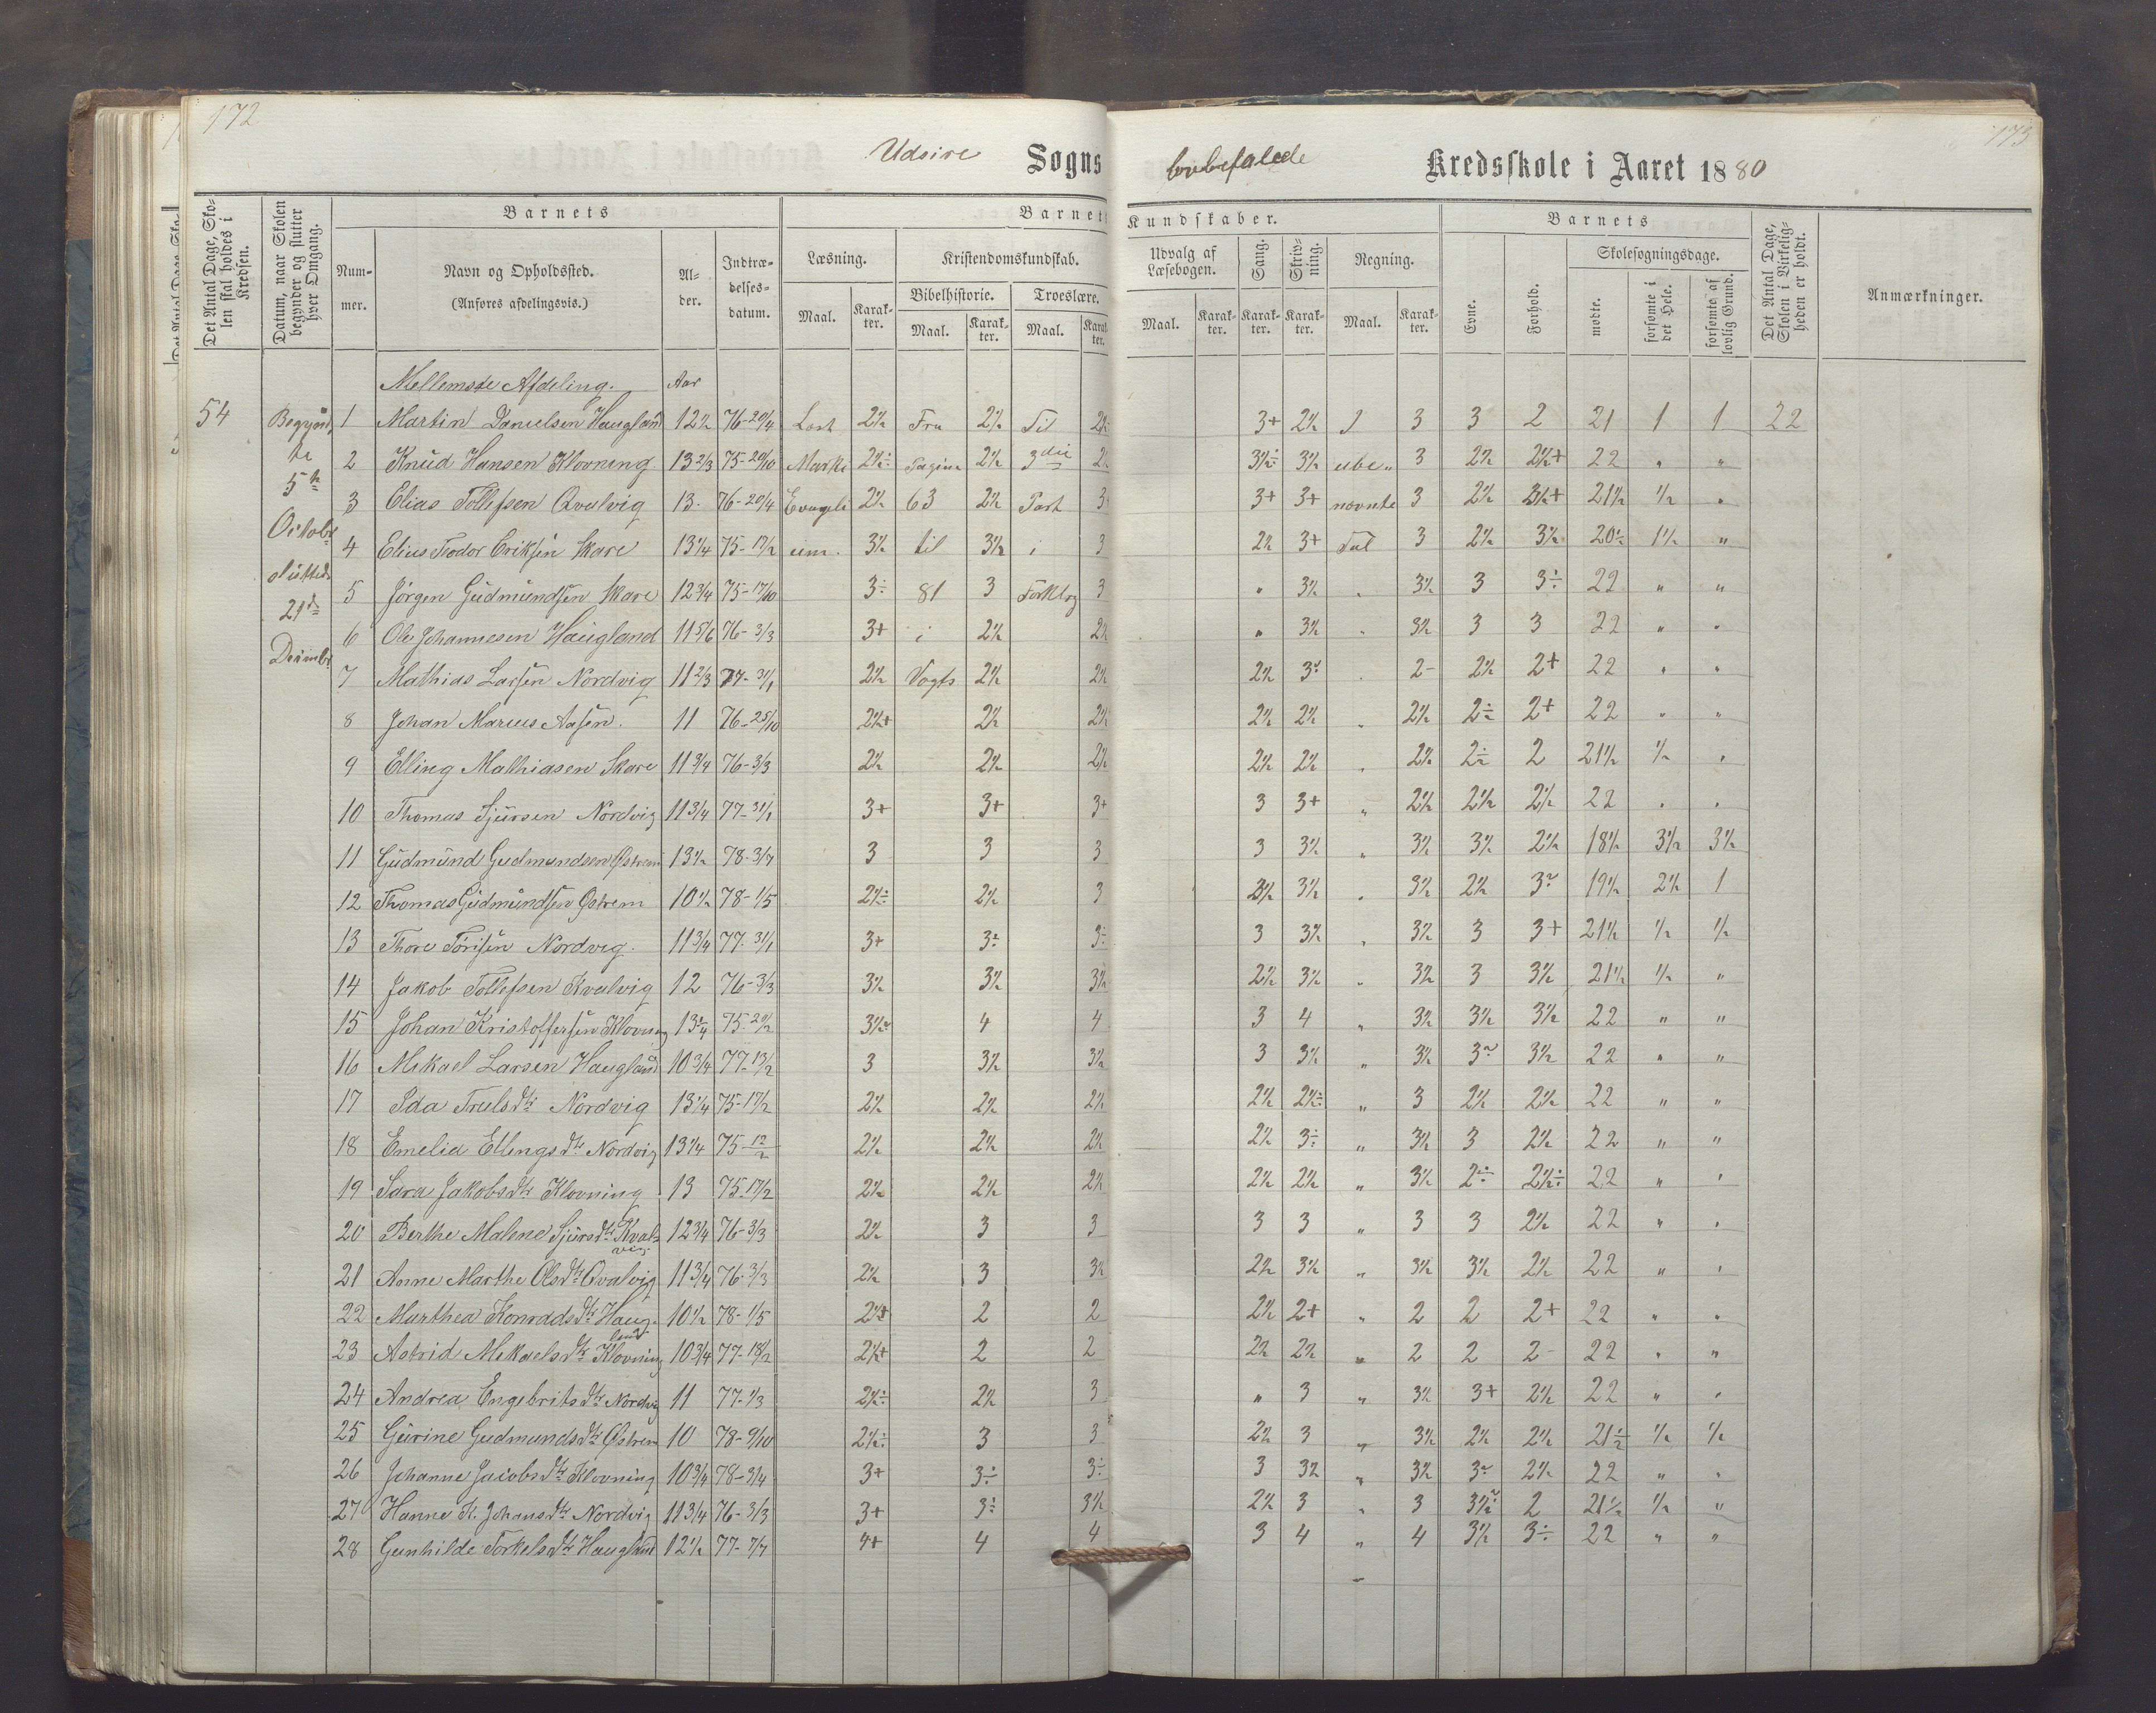 172
173
Udsire Sogns lovbefalede Kredsskole i Aaret 1880
Det Antal Dage, Skolen skal holdes i Kredsen.
Datum, naar Skolen begynder og slutter hver Omgang.
Barnets
Nummer.
Navn og Opholdssted.
(Anføres afdelingsvis.)
Alder.
Indtrædelsesdatum.
Barnets Kundskaber.
Læsning.
Maal.
Karakter.
Kristendomskundskab.
Bibelhistorie.
Maal.
Karakter.
Troeslære.
Maal.
Karakter.
Udvalg af Læsebogen.
Maal.
Karakter.
Sang.
Karakter.
Skrivning.
Karakter.
Regning.
Maal.
Karakter.
Barnets
Evne.
Forhold.
Skolesøgningsdage.
mødte.
forsømte i det Hele.
forsømte af lovlig Grund.
Det Antal Dage, Skolen i Virkeligheden er holdt.
Anmærkninger.
Mellemste Afdeling. Aar
54 Begynd- 1 Martin Danielsen Haugland 12½ 76-20/4 2½ Fra 2½ Til 3+ 2½ 3 3 2 21 1 1 22
te 2 Knud Hansen Klovning 13 2/3 75-20/10 2½÷ Pagina 2½ 3die 3½÷ 3½ ube- 3 2½ 2½+ 22 " "
5te 3 Elias Tollefsen Qvalvig 13 76-20/4 Evangeli 2½ 63 2½ Part 3+ 3+ nævnte 3 2½ 3½+ 21½ ½ "
October 4 Elius Teodor Eriksen Skare 13¼ 75-17/2 um. 3½ til 3½ i 3 2½ 3+ Tal 3 2½ 3½ 20½ 1½ "
sluttede 5 Jørgen Gudmundsen Skare 12¾ 75-17/10 3÷ 81 3 Forklrg 3 " 3½ " 3½ 3 3÷ 22 " "
21de 6 Ole Johannesen Haugland 11 5/6 76-3/3 3+ i 2½ 2½ " 3½ " 3½ 3 3 22 " "
Decimbr 7 Mathias Larsen Nordvig 11 2/3 77-31/1 2½ Vogts 2½ 2½ 2½ 3 " 2- 2½ 2+ 22 " "
8 Johan Marius Aasen. 11 76-25/10 2½+ 2½ 2½ 2½ 2½ " 2½ 2÷ 2+ 22 " "
9 Elling Mathiasen Skare 11¾ 76-3/3 2½ 2½ 2½ 2½ 2½ " 2½ 2÷ 2 21½ ½ "
10 Thomas Sjursen Nordvig 11¾ 77-31/1 3+ 3+ 3+ 3 3+ " 2½ 2½ 2½ 22 " "
11 Gudmund Gudmundsen Østrem 13½ 78-3/7 3 3 3 3 3½ " 3½ 3½ 2½ 18½ 3½ 3½
12 Thomas Gudmundsen Østrem 10½ 78-1/5 2½÷ 2½ 3 3½ " 3½ 2½ 3 19½ 2½ 1
13 Thore Torisen Nordvig. 11¾ 77-31/1 3+ 3÷ 3÷ 3 3½ " 3½ 3 3+ 21½ ½ ½
14 Jakob Tollefsen Kvalvig 12 76-3/3 3½ 3½ 3½ 2½ 3½ " 3½ 3 3½ 21½ ½ "
15 Johan Kristoffersen Klovning 75-20/2 3½ 4 4 3 4 " 3½ 3½ 3½ 22 " "
16 Mikael Larsen Haugland 10¾ 77-13/2 3 3½ 3½ 3 3½ " 3½ 3 3½ 22 " "
17 Ida Trulsdtr Nordvig 13¼ 75-17/2 2½ 2½ 2½ 2½ 2½÷ " 3 2½ 2½ 22 " "
18 Emelia Ellingsdtr Nordvig 13¼ 75-12/2 2½ 2½ 2½ 2½ 3÷ " 3½ 3 2½ 22 " "
19 Sara Jakobsdtr Klovning 13 75-17/2 2½ 2½ 2½ 2½ 2½ " 3½ 2÷ 2½÷ 22 " "
20 Berthe Malene Sjursdtr Kvalvig 12¾ 76-3/3 2½ 3 3 3 3 " 3 3 2½ 22 " "
21 Anne Marthe Olsdtr Qvalvig 11¾ 76-3/3 2½ 3 3½ 2½ 3½ " 3½ 3½ 2½ 22 " "
22 Marthea Konradsdtr Haugland 10½ 78-1/5 2½+ 2 2 2½ 2+ " 2 2 2+ 22 " "
23 Astrid Mikaelsdtr Klovning 10¾ 77-18/2 2½+ 2 2 2½ 2½ " 2 2 2- 22 " "
24 Andrea Engebritsdtr Nordvig 11 77-1/3 2½÷ 2½ 3 " 3 " 3½ 3+ 2½ 22 " "
25 Gurine Gudmundsdtr Østrem 10 78-9/10 2½÷ 3 3 2½ 3 " 3½ 2½ 2½ 21½ ½ ½
26 Johanne Jacobsdtr Klovning 10¾ 78-3/4 3+ 3÷ 3÷ 3 3½ " 3½ 3 2½ 22 " "
27 Hanne K. Johansdtr Nordvig 11¾ 76-3/3 3+ 3÷ 3½ 2½ 3 " 3 3½ 2 21½ ½ "
28 Gunhilde Torkelsdtr Haugland 12½ 77-7/7 4+ 4 4 3 4 " 4 3½ 3÷ 22 " "